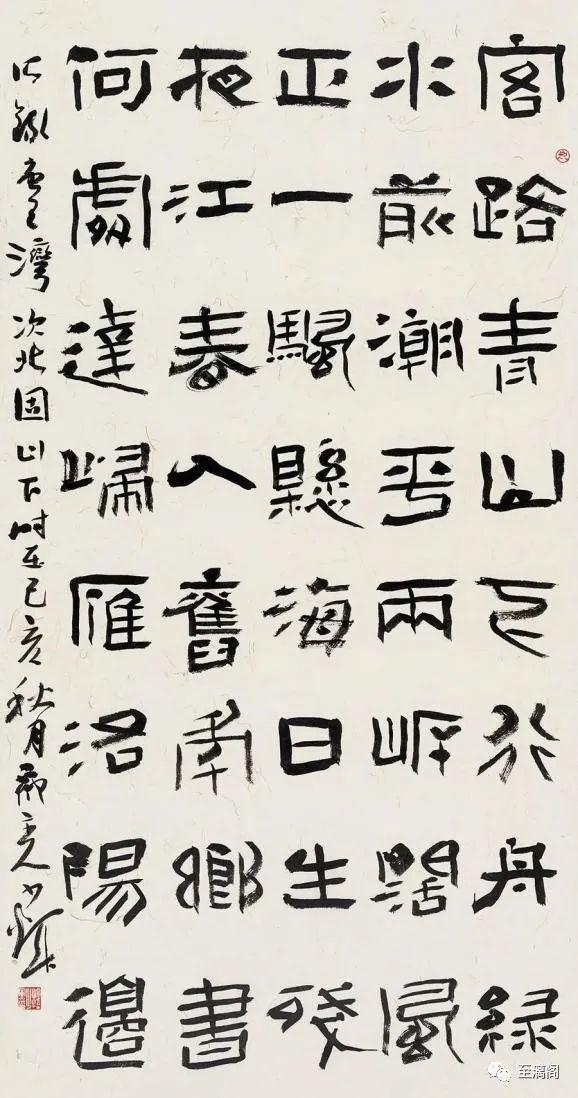 客路青山下行舟綠
水前潮平兩岸闊風
正一颿懸海日生殘
夜江春入舊年鄉書
何處達歸雁洛陽邊
錄唐王灣次北固山下时在己亥秋月
至漓阁